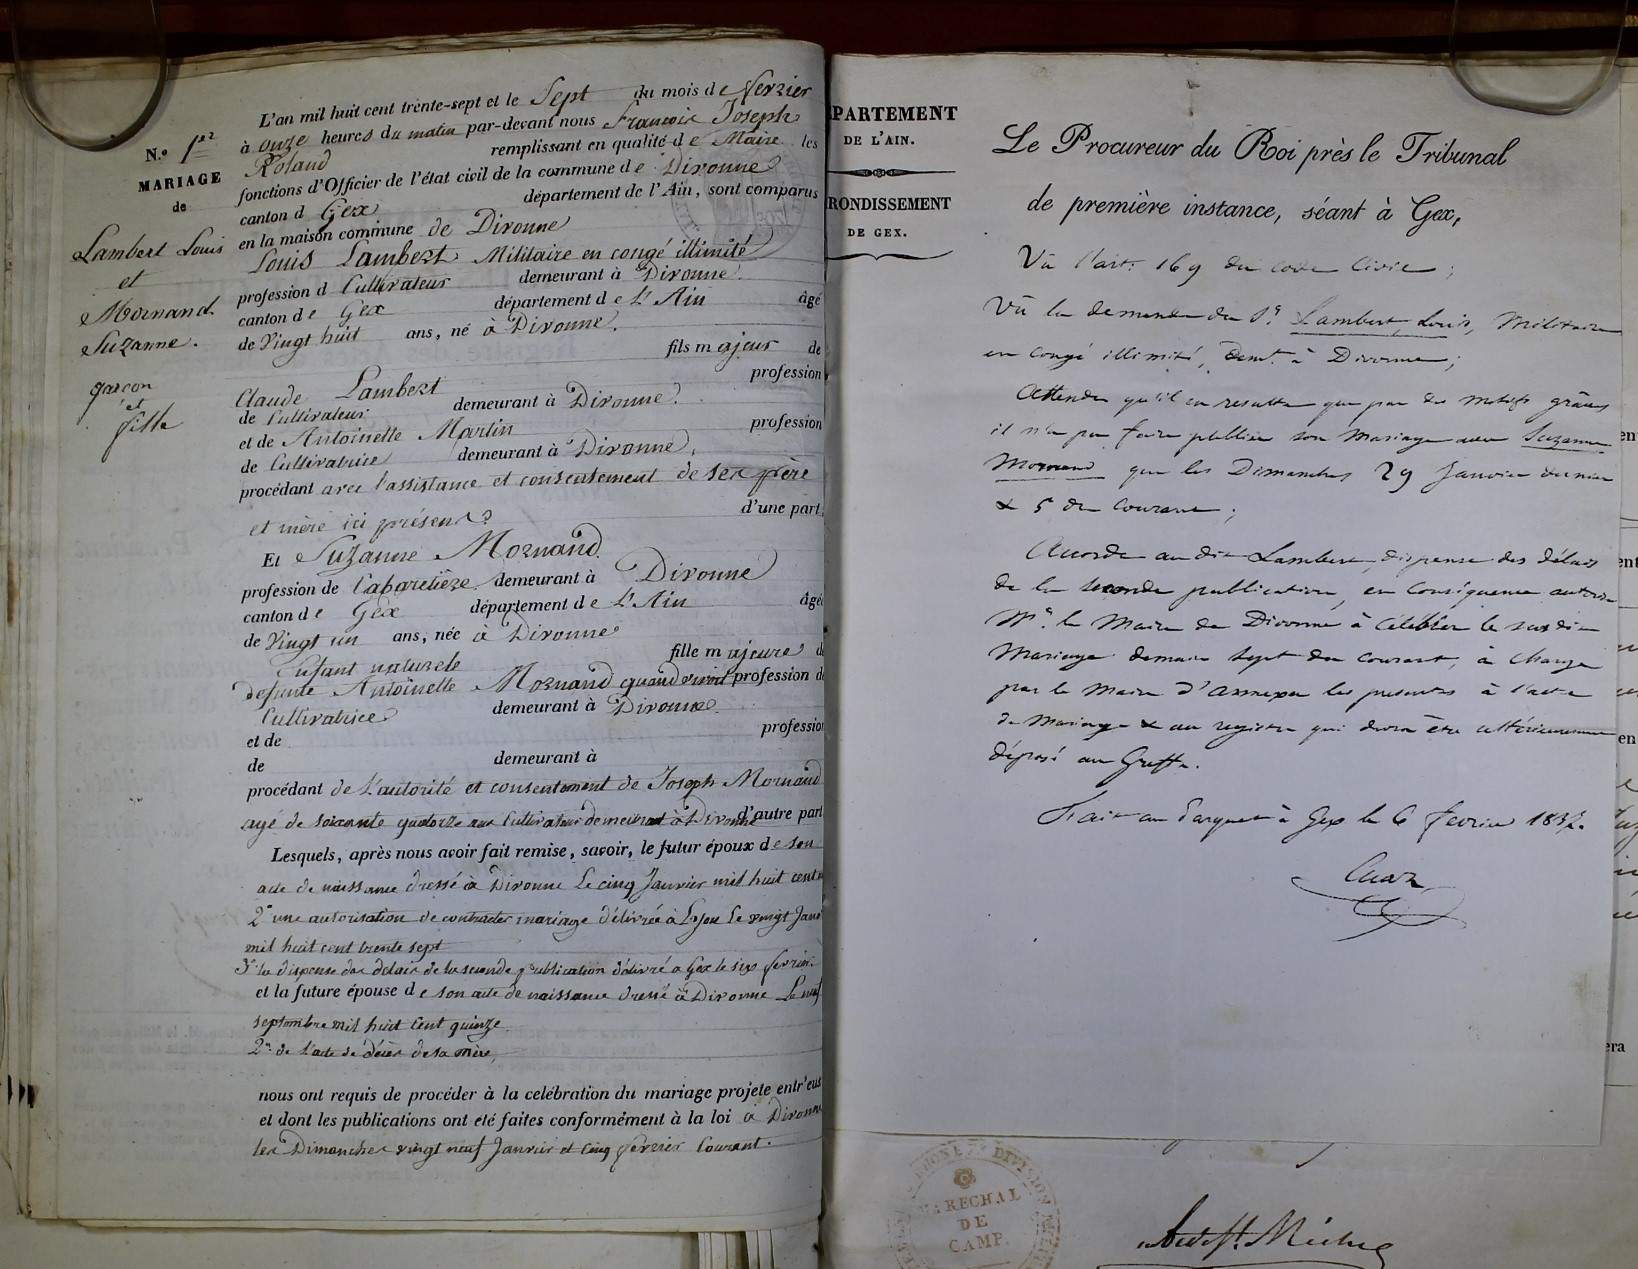 L'an mil huit cent trente-sept et le Sept du mois de fevrier
à onze heures du matin par-devant nous François Joseph
Roland remplissant en qualité de Maire les
fonctions d'Officier de l'état civil de la commune de Divonne
canton d Gex département de l'Ain, sont comparus
en la maison commune de Divonne
Louis Lambert Militaire en congé illimité
profession d Cultivateur demeurant à Divonne.
canton de Gex département de L'Ain âgé
de Vingt huit ans, né à Divonne.
fils majeur de
Claude Lambert profession
de Cultivateur demeurant à Divonne.
et de Antoinette Martin profession
de Cultivatrice demeurant à Divonne,
procédant avec l'assistance et consentement de ses père
et mère ici présens d'une part,
Et Suzanne Mornand
profession de Cabaretière demeurant à Divonne
canton de Gex département de L'Ain âgée
de Vingt un ans, née à Divonne
Enfant naturele fille majeure d
defunte Antoinette Mornand quand vivoit profession d
Cultivatrice demeurant à Divonne
et de profession
de demeurant à
procédant de L'autorité et consentement de Joseph Mornand
agé de soixante quatorze ans Cultivateur demeurant à Divonne d'autre part
Lesquels, après nous avoir fait remise, savoir, le futur époux de son
acte de naissance dressé à Divonne Le cinq Janvier mil huit cent
2° une autorisation de contracter mariage délivrée à Lyon Le vingt Janv
mil huit cent trente sept
3° la dispense des delais de la seconde publication délivré a Gex le six fevrier
et la future épouse de son acte de naissance dressé à Divonne Le neuf
septembre mil huit cent quinze
2° de l'acte de décès de sa mère,
nous ont requis de procéder à la celébration du mariage projeté entr'eux
et dont les publications ont été faites conformément à la loi à Divonne
les Dimanches vingt neuf Janvier et cinq fevrier Courant.
N.° 1er
MARIAGE
de
Lambert Louis
et
Mornand
Suzanne.
garçon
et
fille
PARTEMENT
DE L'AIN.
RONDISSEMENT
DE GEX.
Le Procureur du Roi près le Tribunal
de première instance, séant à Gex,
Vû l'art: 169 du code Civil;
Vû la demande du Sr. Lambert, Louis, Militaire
en congé illimité, demt. à Divonne;
Attendu qu'il en resulte que par des motifs graves
il n'a pu faire publier son Mariage avec Suzanne
Mornand que les Dimanches 29 Janvier dernier
& 5 du Courant;
Accorde au dit Lambert, dispense des délais
de la seconde publication, en Conséquence autorise
Mr. le Maire de Divonne à Célébrer le susdit
Mariage demain sept du Courant, à charge
par le Maire d'annexer les presentes à l'acte
de Mariage & au registre qui devra être ultérieurement
déposé au Greffe.
Fait au Parquet à Gex le 6 fevrier 1837.
DIVISION
MARECHAL
DE
CAMP.